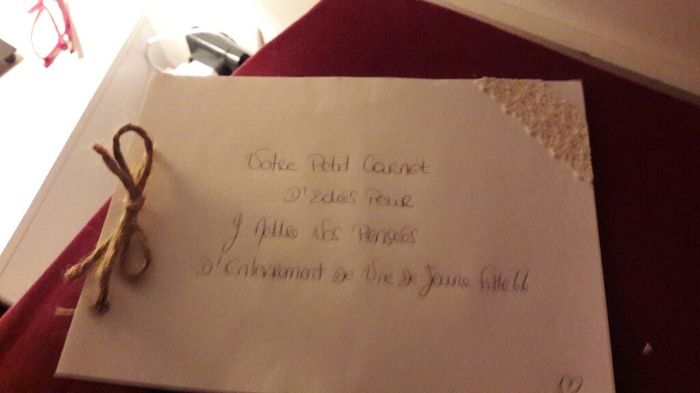 Votre Petit Carnet
D'Idées Pour
Y Mettre Vos Pensées
D'Enterrement De Vie De Jeune Fille